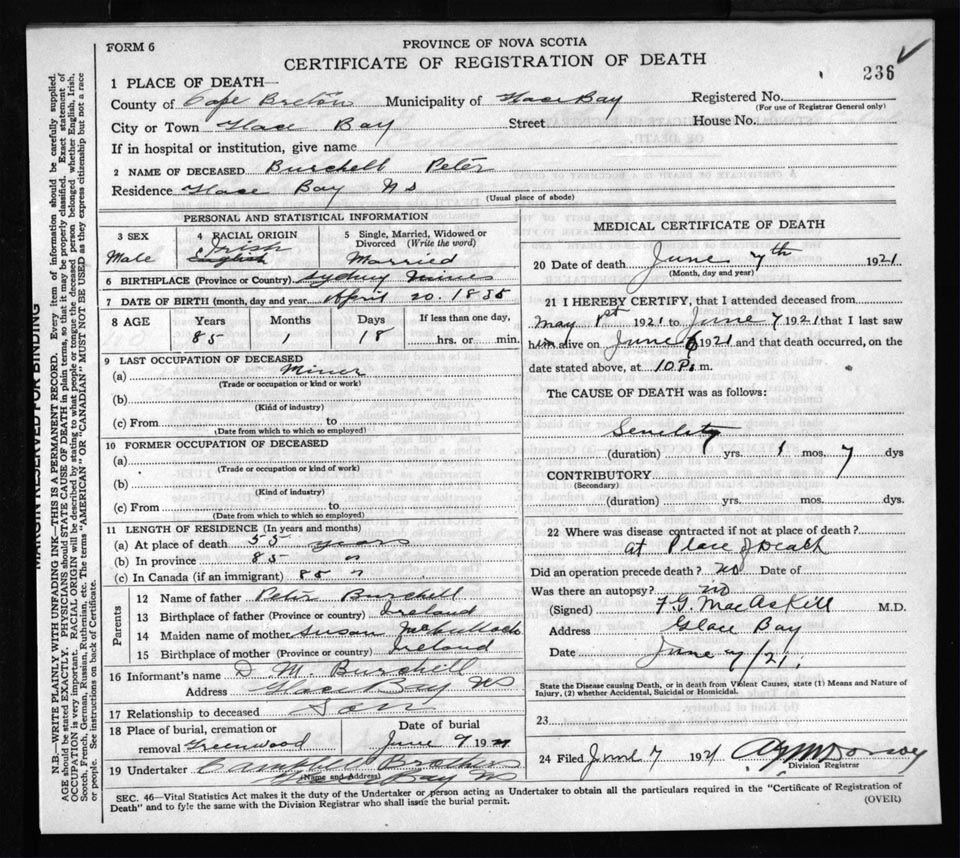 FORM 6
PROVINCE OF NOVA SCOTIA
CERTIFICATE OF REGISTRATION OF DEATH
236
1 PLACE OF DEATH—
County of Cape Breton Municipality of Glace Bay Registered No.
(For use of Registrar General only)
City or Town Glace Bay Street House No.
If in hospital or institution, give name
2 NAME OF DECEASED Burchell Peter
Residence Glace Bay NS
(Usual place of abode)
PERSONAL AND STATISTICAL INFORMATION
3 SEX
Male
4 RACIAL ORIGIN
Irish
English
5 Single, Married, Widowed or Divorced (Write the word)
Married
6 BIRTHPLACE (Province or Country) Sydney Mines
7 DATE OF BIRTH (month, day and year) April 20. 1835
8 AGE
Years Months Days If less than one day,
85 1 18 hrs. or min.
9 LAST OCCUPATION OF DECEASED
(a) Miner
(Trade or occupation or kind or work)
(b)
(Kind of industry)
(c) From to
(Date from which to which so employed)
10 FORMER OCCUPATION OF DECEASED
(a)
(Trade or occupation or kind of work)
(b)
(Kind of industry)
(c) From to
(Date from which to which so employed)
11 LENGTH OF RESIDENCE (In years and months)
(a) At place of death 55 years
(b) In province 85 "
(c) In Canada (if an immigrant) 85 "
Parents
12 Name of father Peter Burchell
13 Birthplace of father (Province or country) Ireland
14 Maiden name of mother Susan
15 Birthplace of mother (Province or country) Ireland
16 Informant's name D M. Burchell
Address Glace Bay NS
17 Relationship to deceased Son
18 Place of burial, cremation or removal Greenwood
Date of burial
June 9 1921
19 Undertaker Brothers
(Name and Address)
Glace Bay NS
MEDICAL CERTIFICATE OF DEATH
20 Date of death June 7th 1921
(Month, day and year)
21 I HEREBY CERTIFY, that I attended deceased from
May 1st 1921 to June 7 1921 that I last saw
him alive on June 6 1921 and that death occurred, on the
date stated above, at 10 P. m.
The CAUSE OF DEATH was as follows:
Senility
(duration) yrs. 1 mos. 7 dys
CONTRIBUTORY
(Secondary)
(duration) yrs. mos. dys.
22 Where was disease contracted if not at place of death?
at Place of Death
Did an operation precede death? no Date of
Was there an autopsy? no
(Signed) F.G. MacAskill M.D.
Address Glace Bay
Date June 7/21.
State the Disease causing Death, or in death from Violent Causes, state (1) Means and Nature of
Injury, (2) whether Accidental, Suicidal or Homicidal.
23
24 Filed June 7 1921
Division Registrar
SEC. 46—Vital Statistics Act makes it the duty of the Undertaker or person acting as Undertaker to obtain all the particulars required in the "Certificate of Registration of
Death" and to fyle the same with the Division Registrar who shall issue the burial permit.
(OVER)
MARGIN RESERVED FOR BINDING
N.B.—WRITE PLAINLY WITH UNFADING INK—THIS IS A PERMANENT RECORD. Every item of information should be carefully supplied.
AGE should be stated EXACTLY. PHYSICIANS should STATE CAUSE OF DEATH in plain terms, so that it may be properly classified. Exact statement of
OCCUPATION is very important. RACIAL ORIGIN will be described by stating to what people or tongue the deceased person belonged whether English, Irish,
Scotch, French, German, Russian, Ruthenian, etc. The terms "AMERICAN" OR "CANADIAN" MUST NOT BE USED as they express citizenship but not a race
or people. See instructions on back of Certificate.